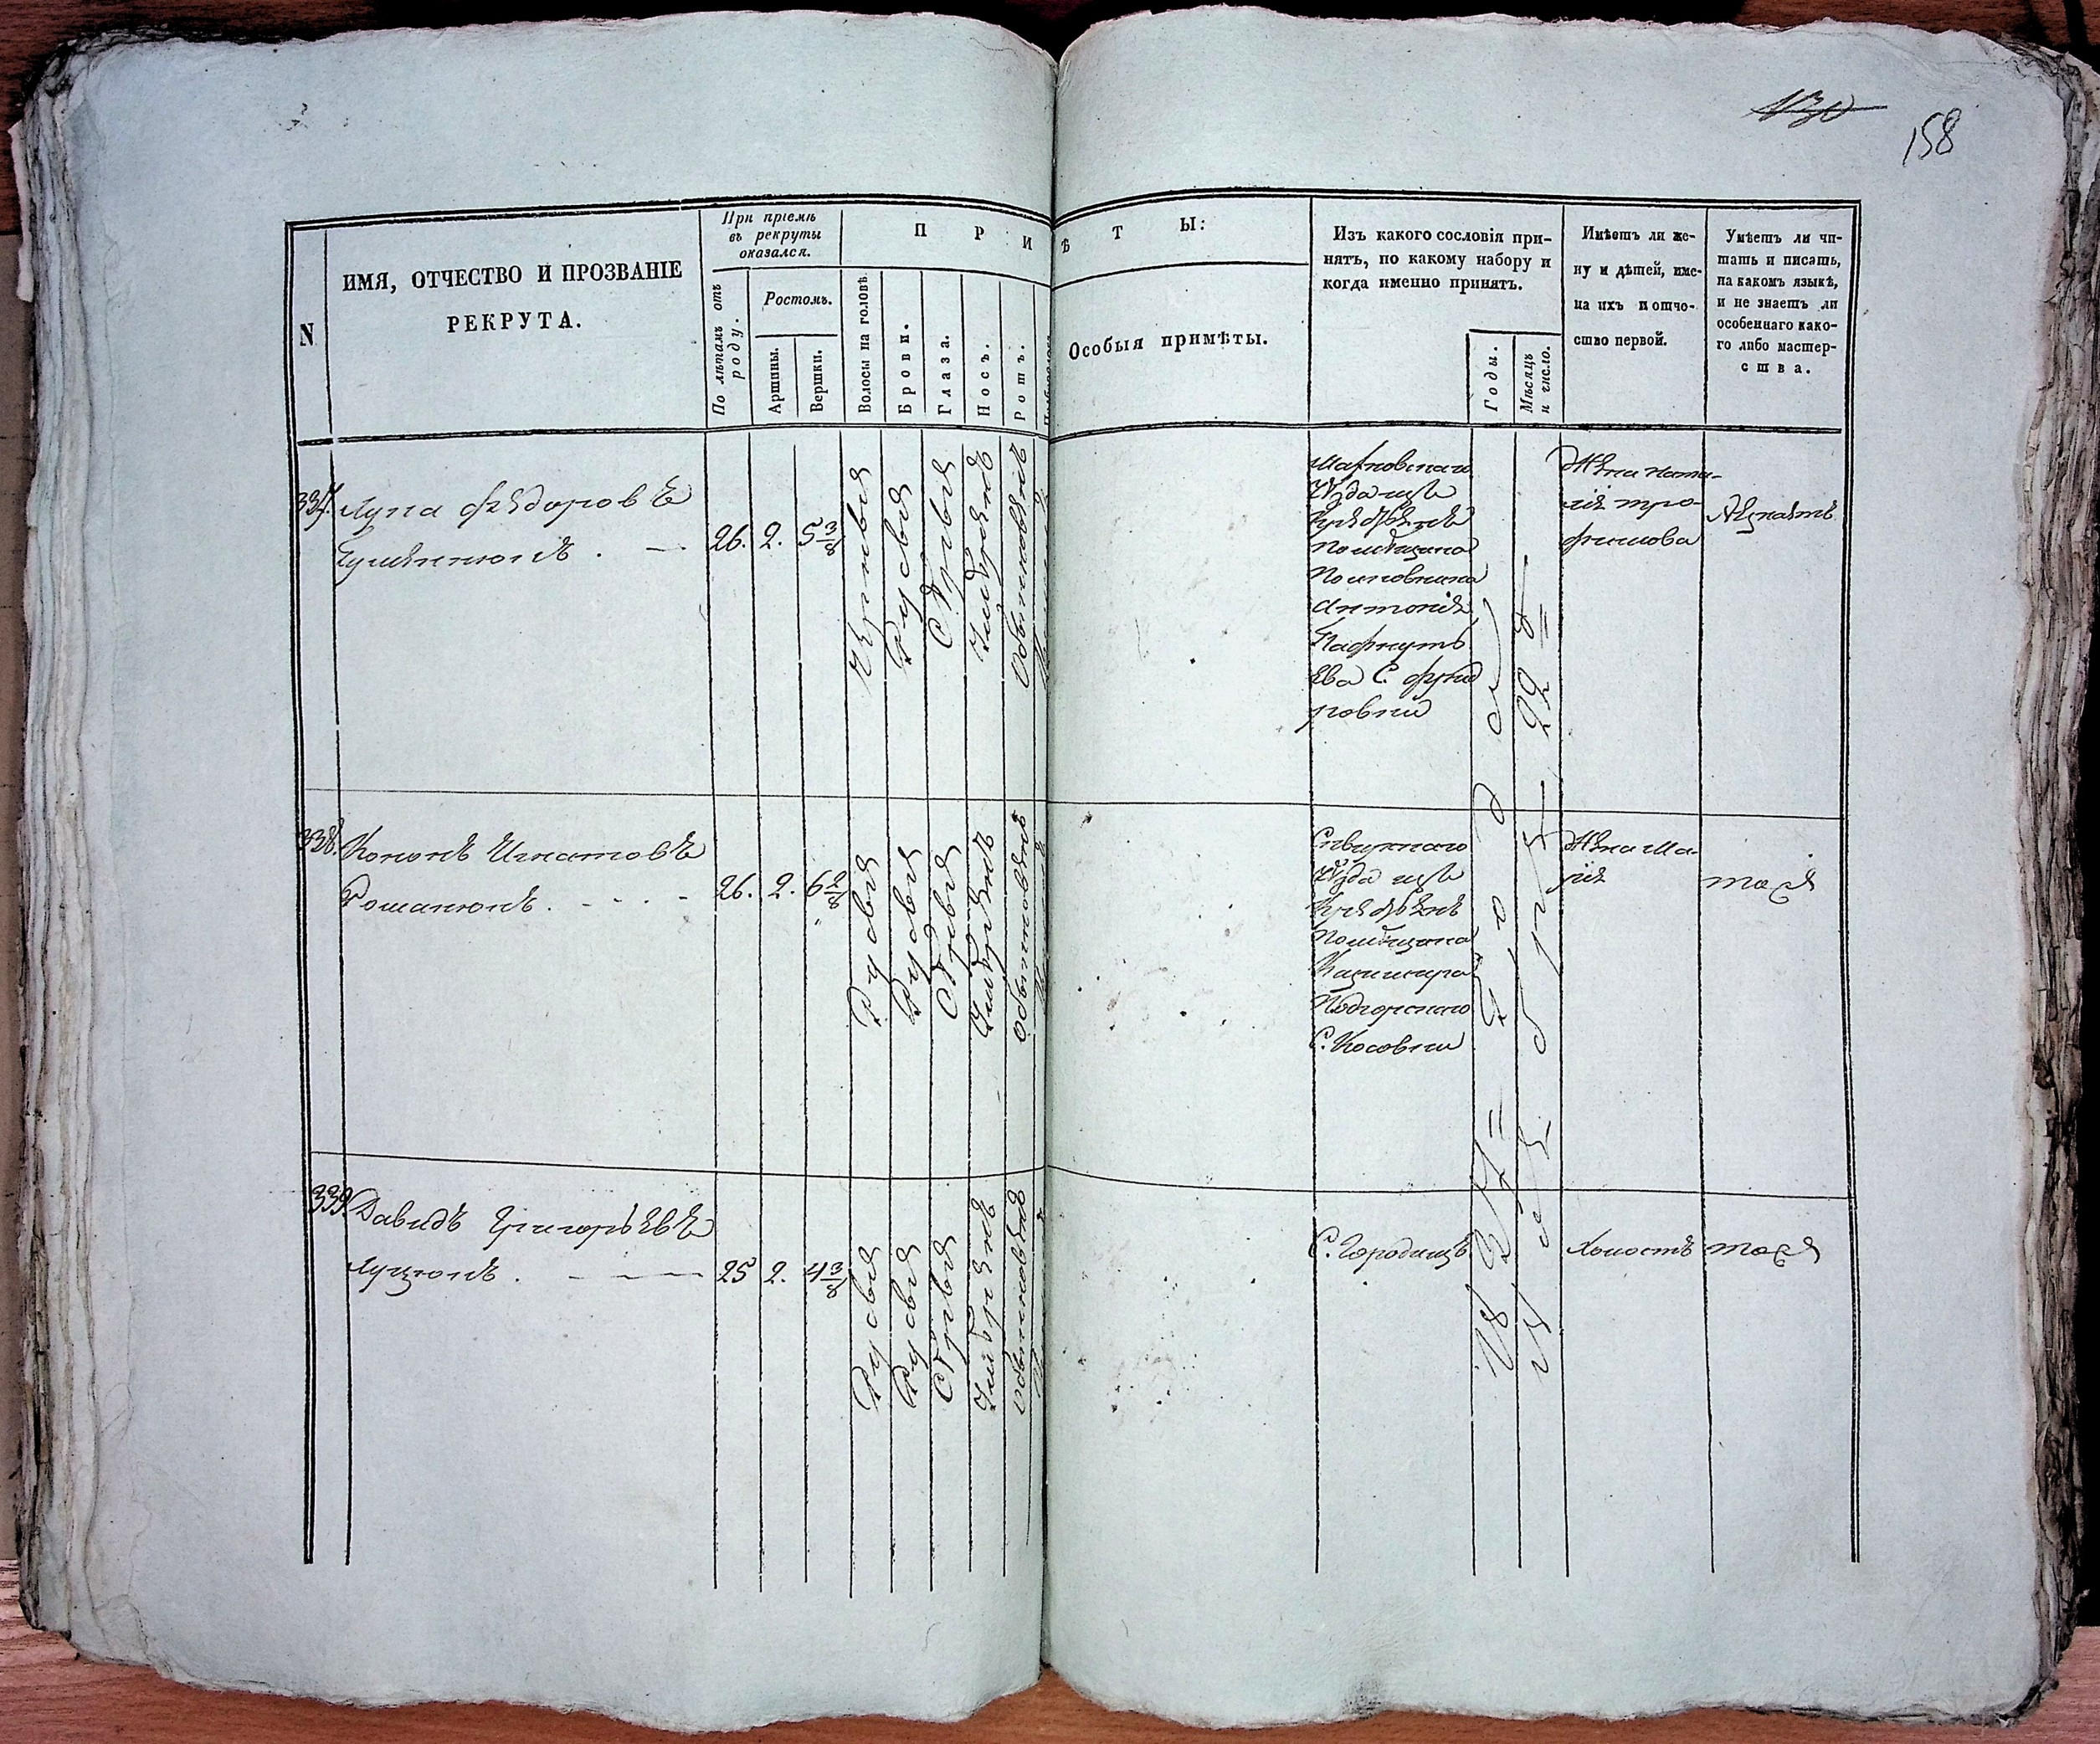 130
158
N
ИМЯ, ОТЧЕСТВО И ПРОЗВАНІЕ
РЕКРУТА.
При пріемѣ
въ рекруты
оказался.
По лѣтамъ отъ
роду.
Ростомъ.
Аршины.
Вершки.
П Р И М Ѣ Т Ы:
Волосы на головѣ.
Брови.
Глаза.
Носъ.
Ротъ.
Особыя примѣты.
Изъ какого сословія при-
нятъ, по какому набору и
когда именно принятъ.
Годы.
Мѣсяцъ
и число.
Имѣетъ ли же-
ну и дѣтей, име-
на ихъ и отче-
ство первой.
Умѣетъ ли чи-
тать и писать,
на какомъ языкѣ,
и не знаетъ ли
особеннаго како-
го либо мастер-
ства.
337.
Лука Федоровъ
26. 2. 5 3/8
Русыя
Сѣрыя
Умѣренъ
обыкновенъ
уѣзда изъ
Крестьянъ
Помѣщика
Полковника
Антонія
Пафнуть
ева С.
Жена Ната-
лія Тро-
фимова
Незнаетъ
338.
Кононъ Игнатовъ
Романюкъ.
26. 2. 6 2/8
Русыя
Русыя
Сѣрыя
Умѣренъ
обыкновенъ
уѣзда изъ
Крестьянъ
Помѣщика
Казимира
Подгорскаго
С. Косовки
Жена Ма-
рія
тоже
339.
Давидъ Григорьевъ
Луцюкъ.
25 2. 4 3/8
Русыя
Русыя
Сѣрыя
Умѣренъ
обыкновенъ
С. Городищъ
Холостъ
тоже
1834 года